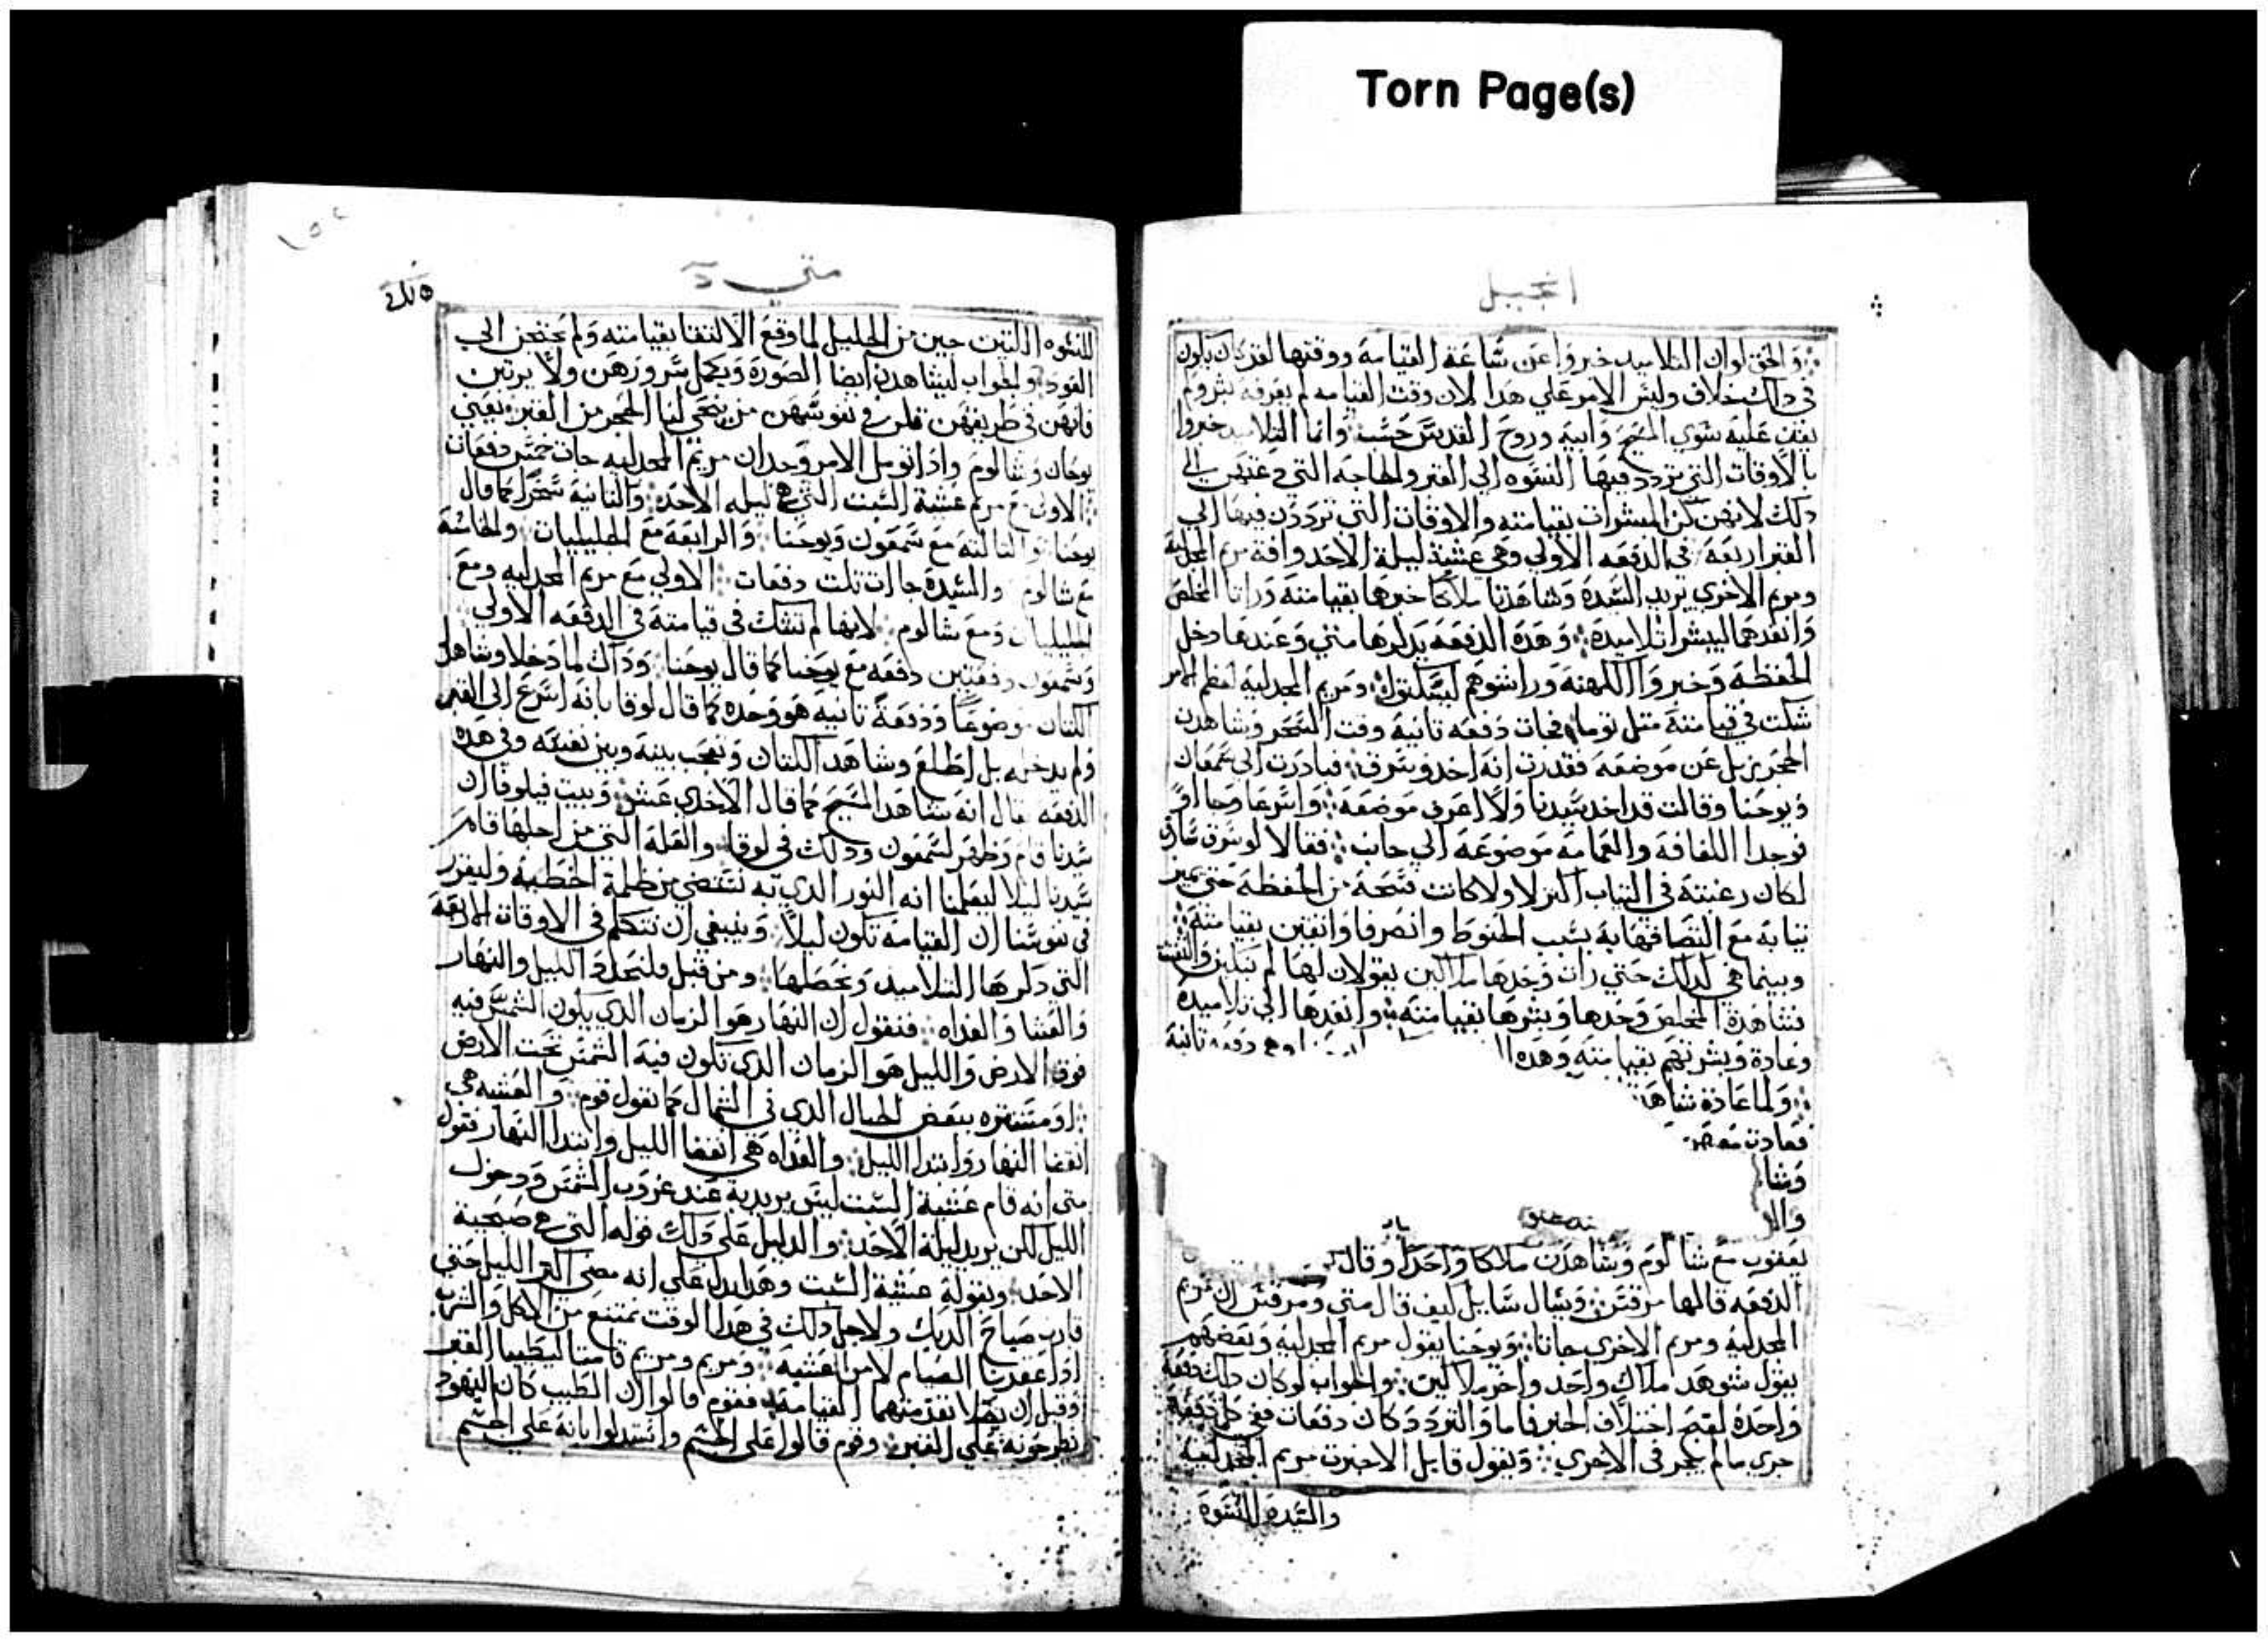 Torn Page(s)
انجيل
والحق لو ان التلاميد خبروا عن ساعة القيامة ووقتها لقد كان يكون
في دلك خلاف وليس الامر علي هدا لان وقت القيامه لم يعرفه بشر ولم
يقف عليه سوي المسيح وابيه وروح القدس حسب وانما التلاميد خبروا
بالاوقات التي تردد فيها النسوه الي القبر والحاجه التي دعتهن الي
دلك لانهن كن المبشرات بقيامته والاوقات التي ترددن فيها الي
القبر اربعة في الدفعه الاولي وهي عشية ليلة الاحد وافة مريم المجدلية
ومريم الاخري يريد السيدة وشاهدتا ملاكا خبرها بقيامته وراتا المخلص
وانفدهما ليبشرا تلاميده وهده الدفعه يدكرها متي وعندها دخل
الحفظة وخبروا الكهنة ورشوهم ليسكتوا ومريم المجدلية لعظم الامر
شكت في قيامته متل توما فجات دفعه تانية وقت السحر وشاهدت
الحجر يزيل عن موضعه فقدرت انه اخد وسرق فبادرت الي شمعان
ويوحنا وقالت قد اخد سيدنا ولا اعرف موضعه واسرعا وجااو
فوجدا اللفافة والعمامة موضوعة الي جانب فقالا لو سرق سارق
لكان رغبته في التياب اكتر لا ولا كانت فسحة من الحفظة حتي يميز
تيابة مع التصاقها به بسبب الحنوط وانصرفا واتقين بقيامته
وبينما هي كدلك حتي رات وحدها ملاكين يقولان لها لم تبكين والتفتت
فشاهدة المخلص وحدها وبشرها بقيامته وانفدها الي تلاميدة
وعادة وبشرتهم بقيامته وهده دفعه تانية
ولما عادة شاهد
فعادت
وشا
وال
يعقوب مع شالوم وشاهدن ملاكا واحدا وقال
الدفعه قالها مرقس ويسال سايل كيف قال متي ومرقس ان مريم
المجدلية ومريم الاخري جاتا ويوحنا يقول مريم المجدلية وبعضهم
يقول شوهد ملاك واحد واخر ملاكين والجواب لو كان دلك دفعة
واحدة لقبح اختلاف الخبر فاما والتردد كان دفعات ففي كل دفعة
جري ما لم يجر في الاخري ويقول قايل الا خبرت مريم المجدلية
والسيدة للنسوة
متي
للنسوه اللتين جين من الجليل لما وقع الالتقا بقيامته ولم يحتجن الي
العود والجواب ليشاهدن ايضا الصورة ويكمل سرورهن ولا يرتبن
فانهن في طريقهن قلن في نفوسهن من ينحي لنا الحجر من القبر يعني
يوحان وشالوم وادا تومل الامر وجد ان مريم المجدلية جات خمس دفعات
الاولي مع مريم عشية السبت التي هي ليله الاحد والتانية سحرا كما قال
يوحنا والتالتة مع شمعون ويوحنا والرابعة مع الجليليات والخامسة
مع شالوم والسيدة جاات تلت دفعات الاولي مع مريم المجدليه ومع
الجليليات ومع شالوم لانها لم تشك في قيامته في الدفعه الاولي
وشمعون دفعتين دفعه مع يوحنا كما قال يوحنا وداك لما دخلا وشاهدا
الكتان موضوعا ودفعة تانيه هو وحده كما قال لوقا بانه اسرع الي القبر
ولم يدخله بل اطلع وشاهد الكتان وتعجب بينه وبين نفسه وفي هده
الدفعه قال انه شاهد المسيح كما قال الاخدي عشر وبيت فيلوفا ان
سيدنا قام وظهر لشمعون ودلك في لوقا والعلة التي من اجلها قام
سيدنا ليلا ليعلمنا انه النور الدي به نستضي من ظلمة الخطية وليقرر
في نفوسنا ان القيامة تكون ليلا وينبغي ان نتكلم في الاوقات الاربعة
التي دكرها التلاميد ونحصلها ومن قبل فلنحد الليل والنهار
والعشا والغداه فنقول ان النهار هو الزمان الدي يكون الشمس فيه
فوق الارض والليل هو الزمان الدي تكون فيه الشمس تحت الارض
او مستتره ببعض الجبال الدي في الشمال كما يقول قوم والعشيه هي
انقضا النهار وابتدا الليل والغداه هي انقضا الليل وابتدا النهار فقول
متي انه قام عشية السبت ليس يريد به عند غروب الشمس ودخول
الليل لكن يريد ليلة الاحد والدليل علي دلك قوله التي هي صبحية
الاحد وبقوله عشية السبت وهدا يدل علي انه مضي اكتر الليل حتي
قارب صباح الديك ولاجل دلك في هدا الوقت نمتنع من الاكل والشرب
ادا عقدنا الصيام لا من العشية ومريم ومريم قامتا ليطيبا القبر
وقبل ان يصلا تقدمتهما القيامة فقوم قالوا ان الطيب كان اليهود
يطرحونه علي القبر وقوم قالوا علي الجسم واستدلوا بانه علي الجسم